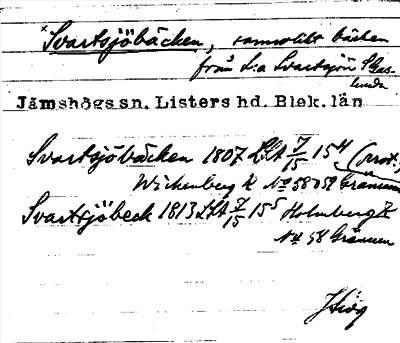 *Svartsjöbäcken, sannolikt bäcken
från L:a Svartsjön S Gas-
lunda
Jämshögs sn. Listers hd. Blek. län
Svartsjöbäcken 1807 LSA 7/15 15⁴
Wickenberg k No 58 o 59 Gränum
Svartsjöbeck 1813 LSA 7/15 15⁵ Holmberg k
No 58 Gränum